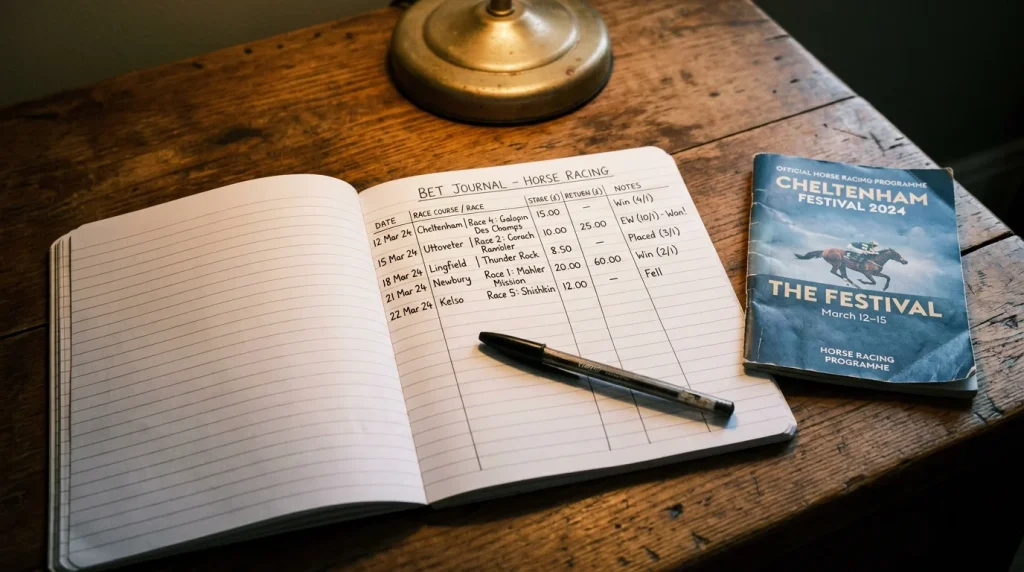 BET JOURNAL – HORSE RACING
DATE RACE COURSE / RACE STAGE (£) RETURN (£) NOTES
12 Mar 24 Cheltenham | Race 4: Galopin 15.00 — Win (4/1)
Des Champs
15 Mar 24 Uttoveter | Race 2: Corach 10.00 25.00 EW (10/1) - Won!
Rambler
18 Mar 24 Lingfield | Thunder Rock 8.50 — Placed (3/1)
21 Mar 24 Newbury Race 1: Mahler 20.00 60.00 Win (2/1)
Mission
22 Mar 24 Kelso Race 5: Shishkin 12.00 — Fell
OFFICIAL HORSE RACING PROGRAMME
CHELTENHAM
FESTIVAL 2024
THE FESTIVAL
March 12–15
HORSE RACING
PROGRAMME